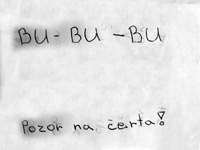 BU - BU - BU
Pozor na čerta!